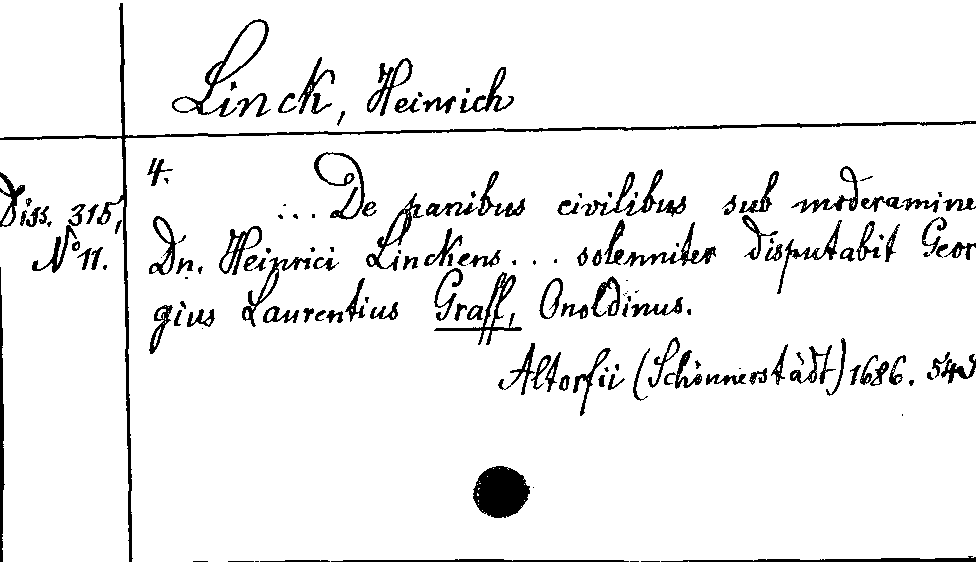 Linck, Heinrich
4.
Diss. 315,
No 11.
... De panibus civilibus sub moderamine
Dn. Heinrici Linckens ... solenniter disputabit Geor
gius Laurentius Graff, Onoldinus.
Altorfii (Schönnerstädt) 1686. 54 S